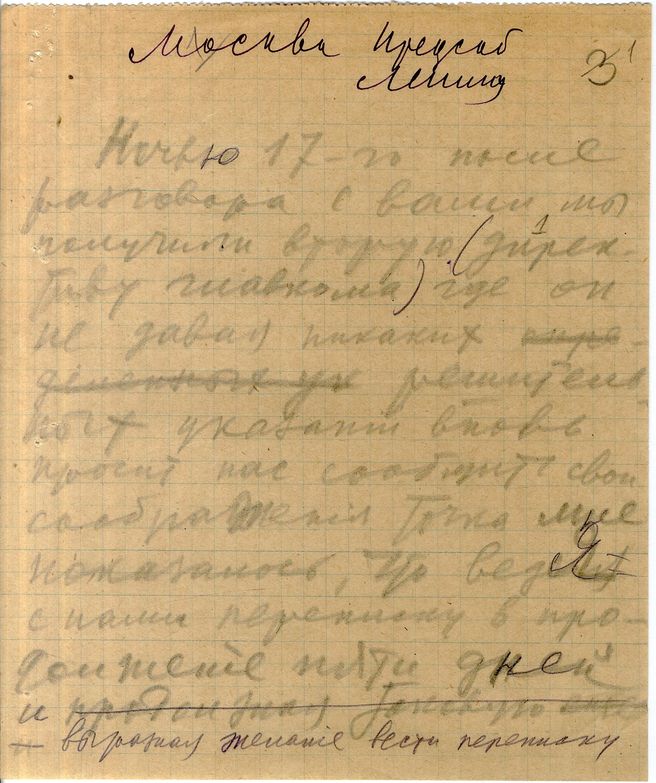 Москва Предсоб
Ленину
3 1
Ночью 17-го после
разговора с вами мы
получили вторую (дирек-
тиву главкома) где он
не давая никаких опре-
деленных ук решитель-
ных указаний вновь
просит нас сообщить свои
соображенія Точка мне
показалось, что
с нами переписку в про-
долженіе пяти дней
и продолжая
выражая желаніе вести переписку